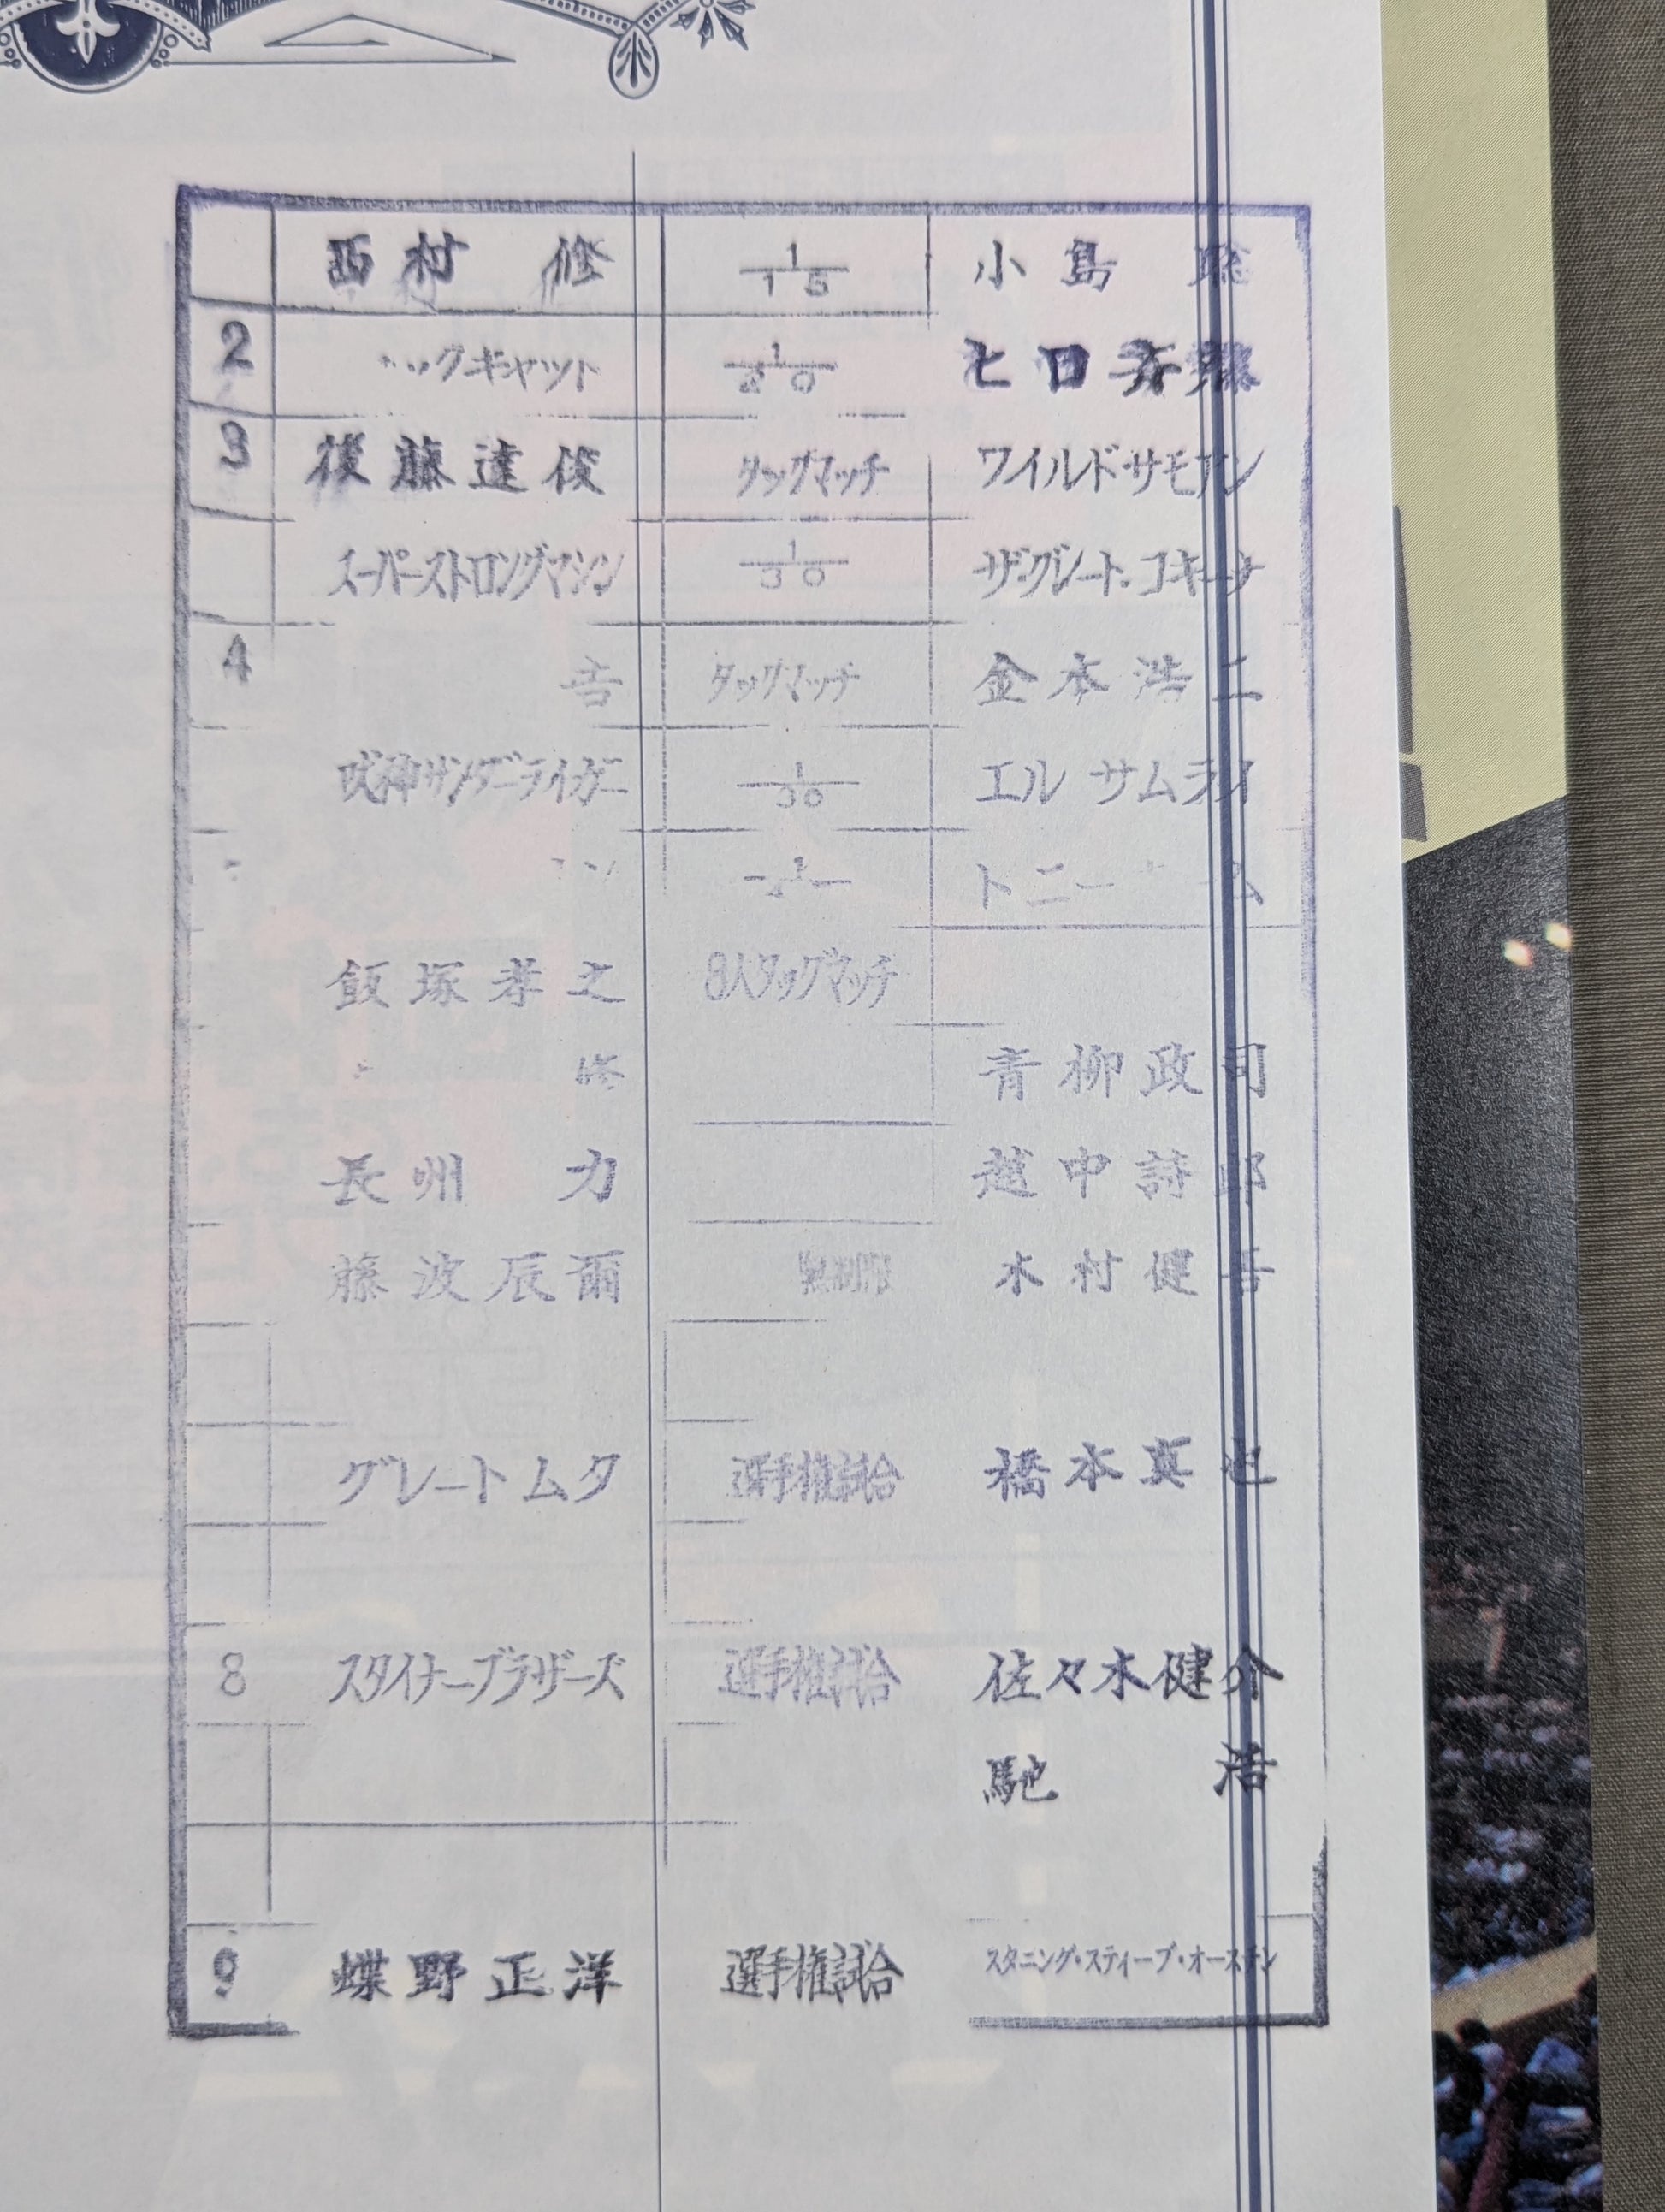 西村 修 1/15 小島 聡
2 ックキャット 1/20 ヒロ斉藤
3 後藤達俊 タッグマッチ ワイルド・サモアン
スーパーストロングマシン 1/30 ザ・グレート・コキーナ
4 吾 タッグマッチ 金本浩二
獣神サンダーライガー 1/30 エル サムライ
1 トニー ム
飯塚孝之 8人タッグマッチ
修 青柳政司
長州 力 越中詩郎
藤波辰爾 無制限 木村健吾
グレートムタ 選手権試合 橋本真也
8 スタイナーブラザーズ 選手権試合 佐々木健介
馳 浩
9 蝶野正洋 選手権試合 スタニング・スティーブ・オースチン